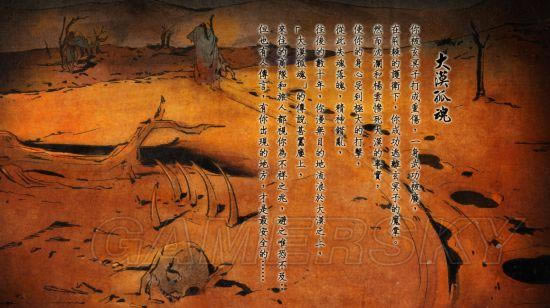 大漠孤魂
你被玄冥子打成重傷，一身武功被廢，
在的護衛下，你成功逃離玄冥子的魔掌。
然而沈瀾和楊雲慘死大漠的事實，
使你的身心受到極大的打擊，
從此失魂落魄，精神錯亂，
往後的數十年，你漫無目的地流浪於大漠之上，
「大漠孤魂」的傳說甚囂塵上，
來往的商隊和旅人都視你為不祥之兆，避之唯恐不及…
但也有人傳言，有你出現的地方，才是最安全的……
GAMERSKY